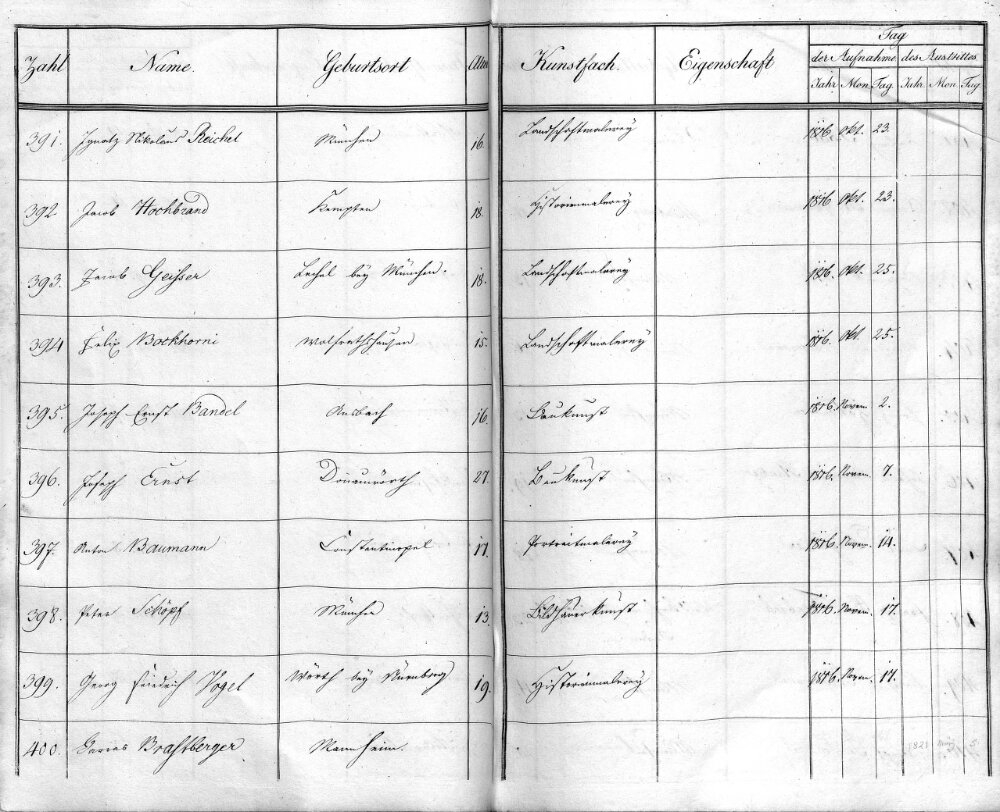 Zahl Name. Geburtsort Alter Kunstfach. Eigenschaft Tag
der Aufnahme des Austrittes
Jahr Mon. Tag. Jahr. Mon. Tag
391. Ignatz Nikolaus Reichel München 16. Landschaftmalerey 1816 Okt. 23.
392. Jacob Hochbrand Kempten 18. Historienmalerey 1816 Okt. 23.
393. Jacob Geisser Lechel bey München. 18. Landschaftmalerey 1816. Okt. 25.
394 Felix Bockhorni Wolfertshausen 15. Landschaftmalerey 1816. Okt. 25.
395. Joseph Ernst Bandel Ansbach 16. Baukunst 1816. Novem. 2.
396. Joseph Ernst Donauwörth 27. Baukunst 1816. Novem. 7.
397. Anton Baumann Constantinopel 17. Portraitmalerey 1816. Novem. 14.
398. Peter Schöpf München 13. Bildhauerkunst 1816. Novem. 17.
399. Georg Friedrich Vogel Wörth bey Nürnberg 19. Historienmalerey 1816. Novem. 17.
400. Brastberger Mannheim.